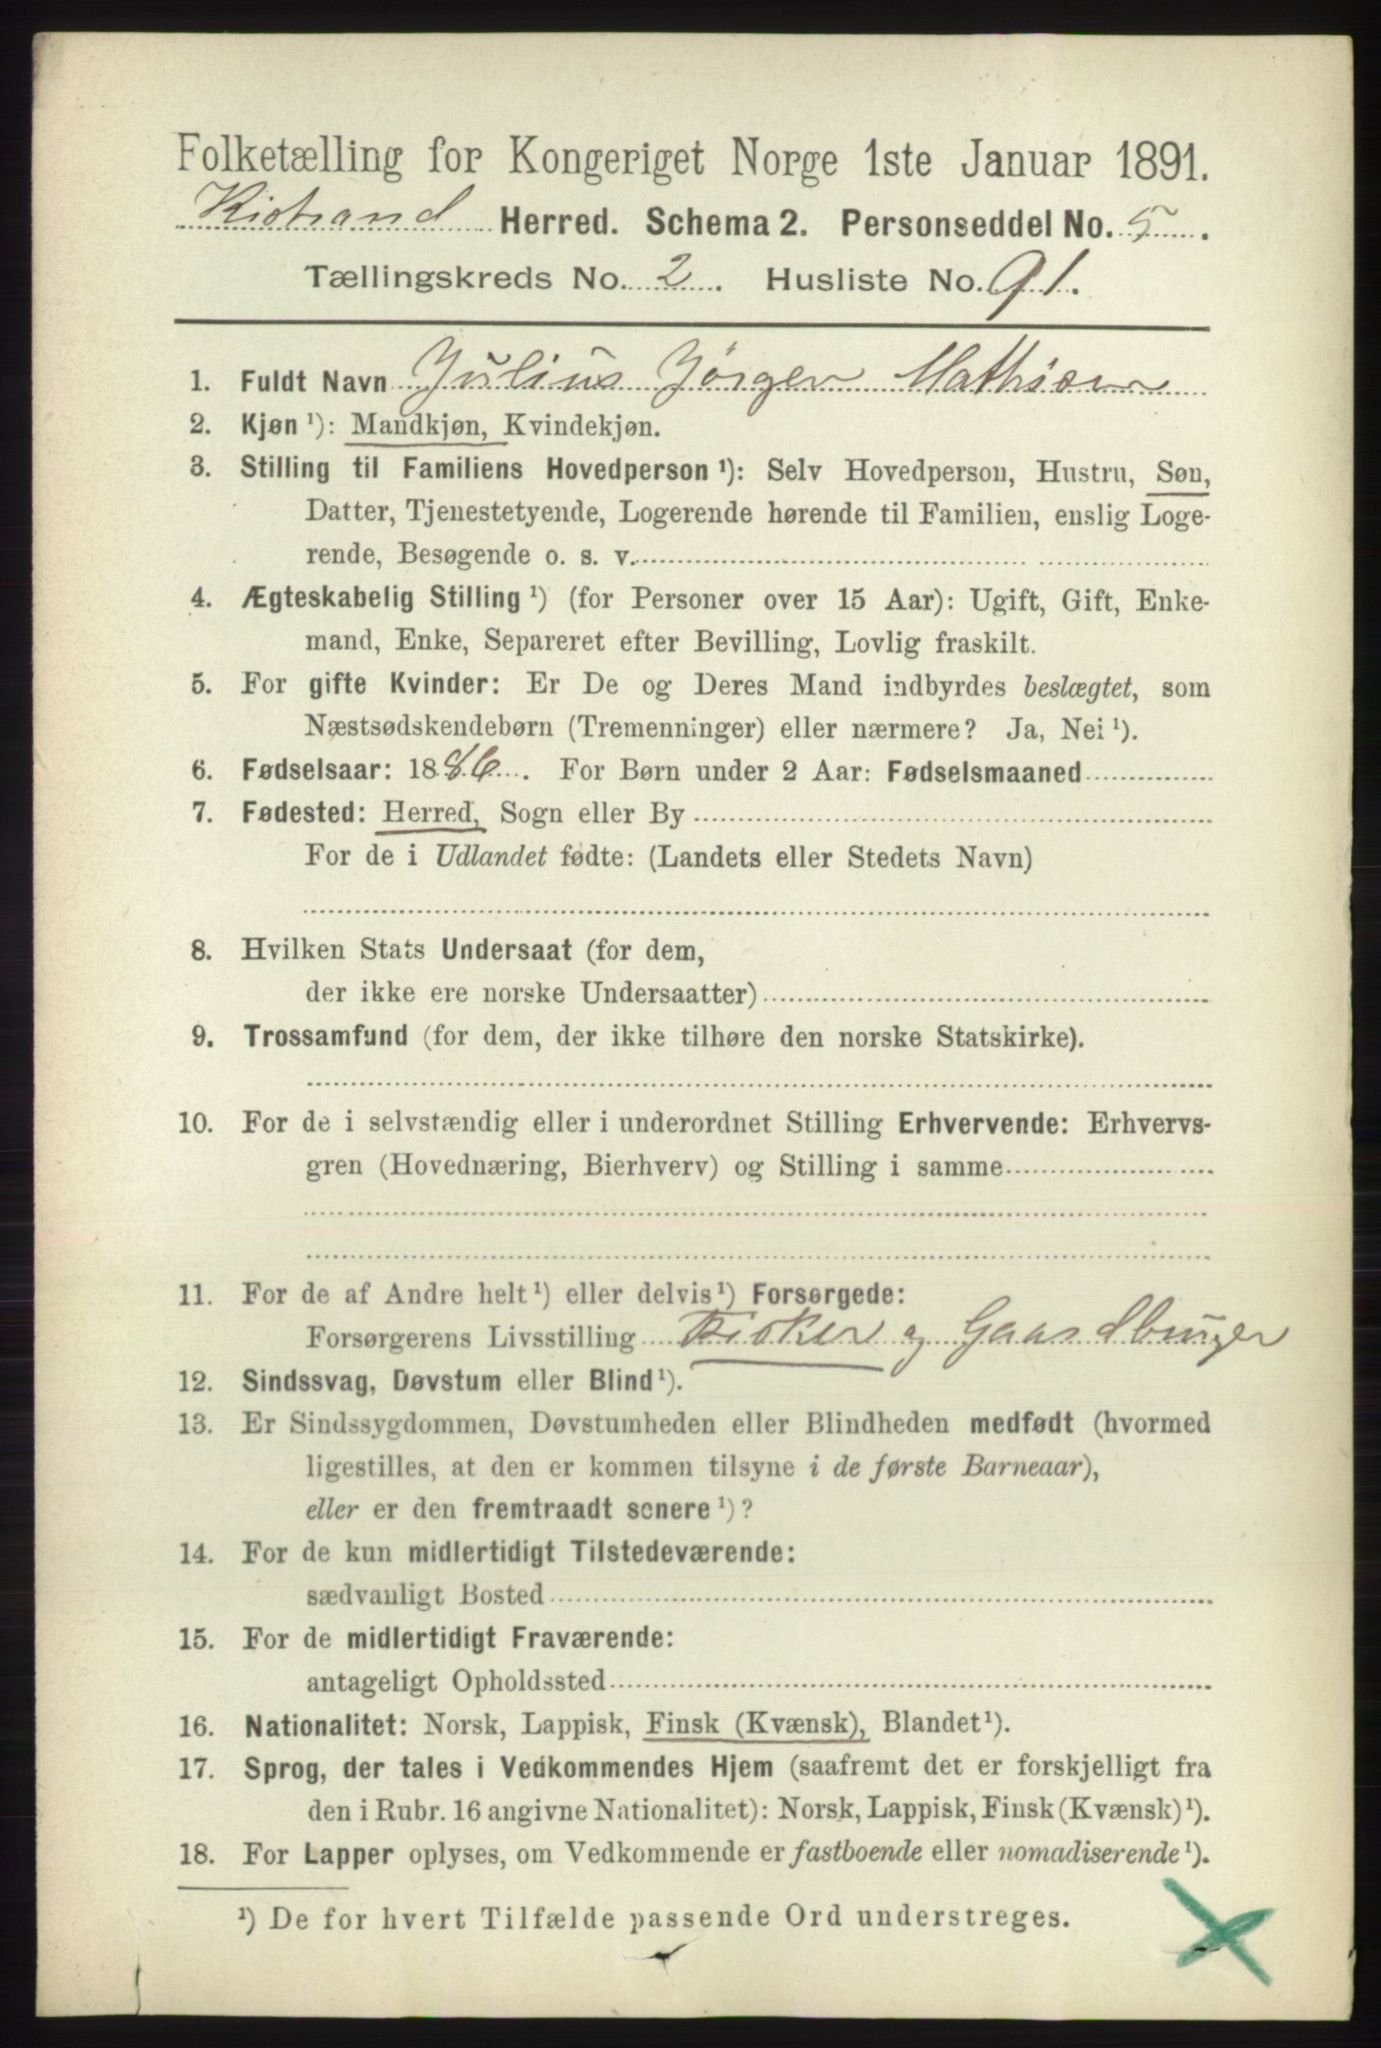 Folketælling for Kongeriget Norge 1ste Januar 1891.
Kistrand Herred. Schema 2. Personseddel No. 5.
Tællingskreds No. 2. Husliste No. 91.
1. Fuldt Navn Julius Jørgen Mathisen
2. Kjøn ¹): Mandkjøn, Kvindekjøn.
3. Stilling til Familiens Hovedperson ¹): Selv Hovedperson, Hustru, Søn,
Datter, Tjenestetyende, Logerende hørende til Familien, enslig Loge-
rende, Besøgende o. s. v.
4. Ægteskabelig Stilling ¹) (for Personer over 15 Aar): Ugift, Gift, Enke-
mand, Enke, Separeret efter Bevilling, Lovlig fraskilt.
5. For gifte Kvinder: Er De og Deres Mand indbyrdes beslægtet, som
Næstsødskendebørn (Tremenninger) eller nærmere? Ja, Nei ¹).
6. Fødselsaar: 1886. For Børn under 2 Aar: Fødselsmaaned
7. Fødested: Herred, Sogn eller By
For de i Udlandet fødte: (Landets eller Stedets Navn)
8. Hvilken Stats Undersaat (for dem,
der ikke ere norske Undersaatter)
9. Trossamfund (for dem, der ikke tilhøre den norske Statskirke).
10. For de i selvstændig eller i underordnet Stilling Erhvervende: Erhvervs-
gren (Hovednæring, Bierhverv) og Stilling i samme
11. For de af Andre helt ¹) eller delvis ¹) Forsørgede:
Forsørgerens Livsstilling Fisker og Gaardbruger
12. Sindssvag, Døvstum eller Blind ¹).
13. Er Sindssygdommen, Døvstumheden eller Blindheden medfødt (hvormed
ligestilles, at den er kommen tilsyne i de første Barneaar),
eller er den fremtraadt senere ¹)?
14. For de kun midlertidigt Tilstedeværende:
sædvanligt Bosted
15. For de midlertidigt Fraværende:
antageligt Opholdssted
16. Nationalitet: Norsk, Lappisk, Finsk (Kvænsk), Blandet ¹).
17. Sprog, der tales i Vedkommendes Hjem (saafremt det er forskjelligt fra
den i Rubr. 16 angivne Nationalitet): Norsk, Lappisk, Finsk (Kvænsk) ¹).
18. For Lapper oplyses, om Vedkommende er fastboende eller nomadiserende ¹).
¹) De for hvert Tilfælde passende Ord understreges.